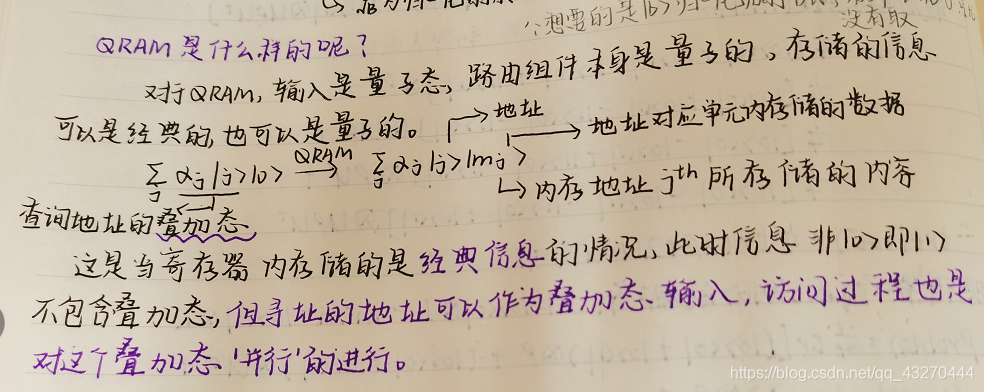 QRAM是什么样的呢？
对于QRAM，输入是量子态，路由组件本身是量子的，存储的信息
没有取
可以是经典的，也可以是量子的。 地址 地址对应单元内存储的数据
∑j αj|j>|0> QRAM→ ∑j αj|j>|mj>
内存地址jth所存储的内容
查询地址的叠加态
这是当寄存器内存储的是经典信息的情况，此时信息非|0>即|1>
不包含叠加态，但寻址的地址可以作为叠加态输入，访问过程也是
对这个叠加态'并行'的进行。
https://blog.csdn.net/qq_43270444